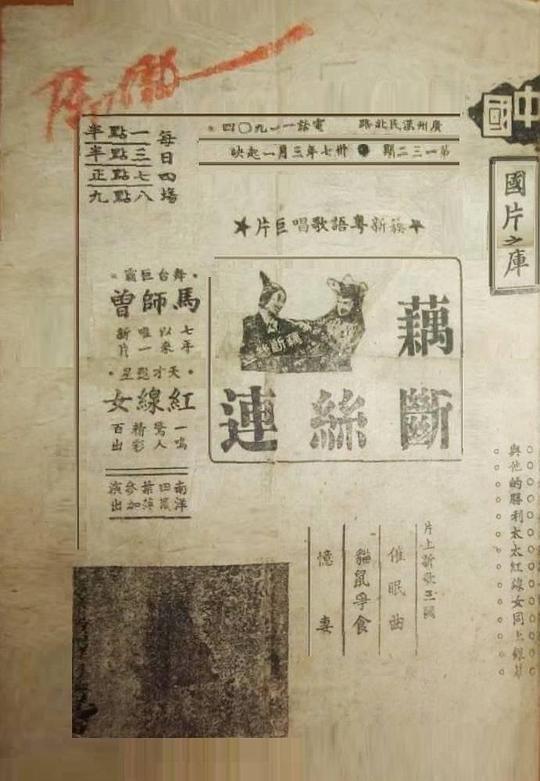 中國
國片之庫
與他的勝利太太紅線女同上銀幕
廣州漢民北路 電話一一九〇四
第一三二期 卅七年三月一起映
每日四場
一點半
三點半
七點正
八點九
簇新粵語歌唱巨片
藕斷絲連
藕斷
舞台巨霸
馬師曾
七年以來唯一新片
天才艷星
紅線女
一鳴驚人精彩百出
南洋
參加演出
片上新歌三
催眠曲
貓鼠爭食
憶妻